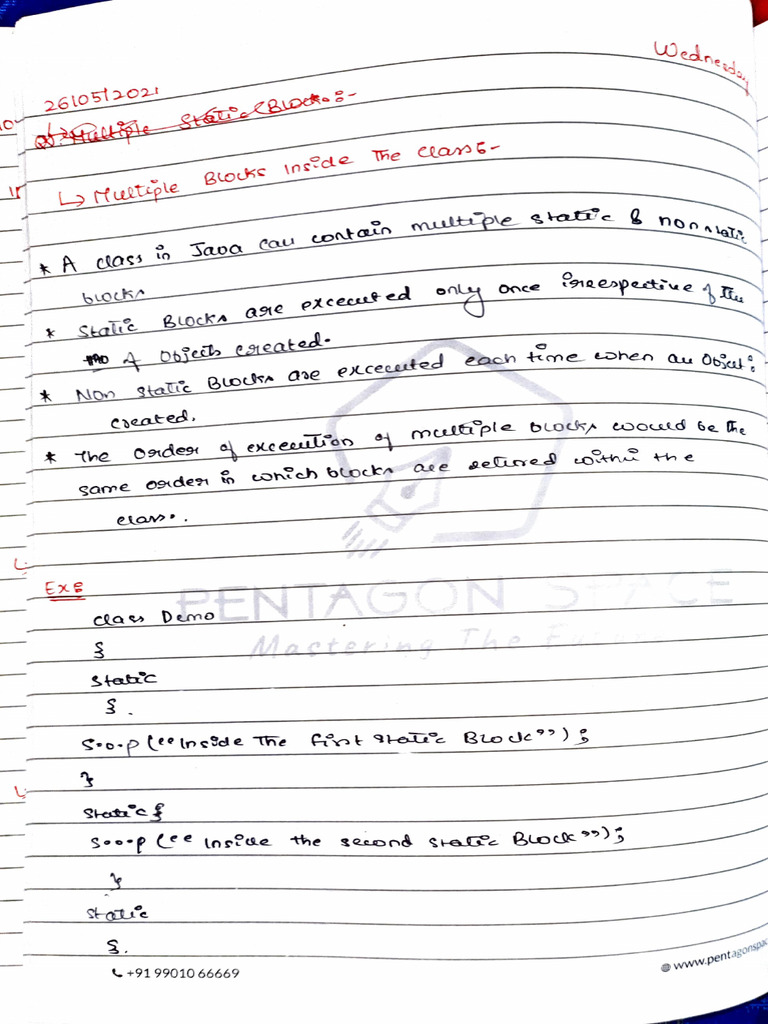 Wednesday
26/05/2021
Multiple Static Blocks:-
↳ Multiple Blocks Inside The Class:-
* A class in Java can contain multiple static & non static
blocks
* Static Blocks are excecuted only once irrespective of the
no of Objects created.
* Non Static Blocks are excecuted each time when an Object is
created.
* The order of excecution of multiple blocks would be the
same order in which blocks are defined within the
class.
Ex:
class Demo
{
static
{
S.o.p (“Inside The first static Block”);
}
static {
S.o.p (“Inside the second static Block”);
}
static
{
PENTAGON SPACE
Mastering The Future
+91 99010 66669
www.pentagonspac